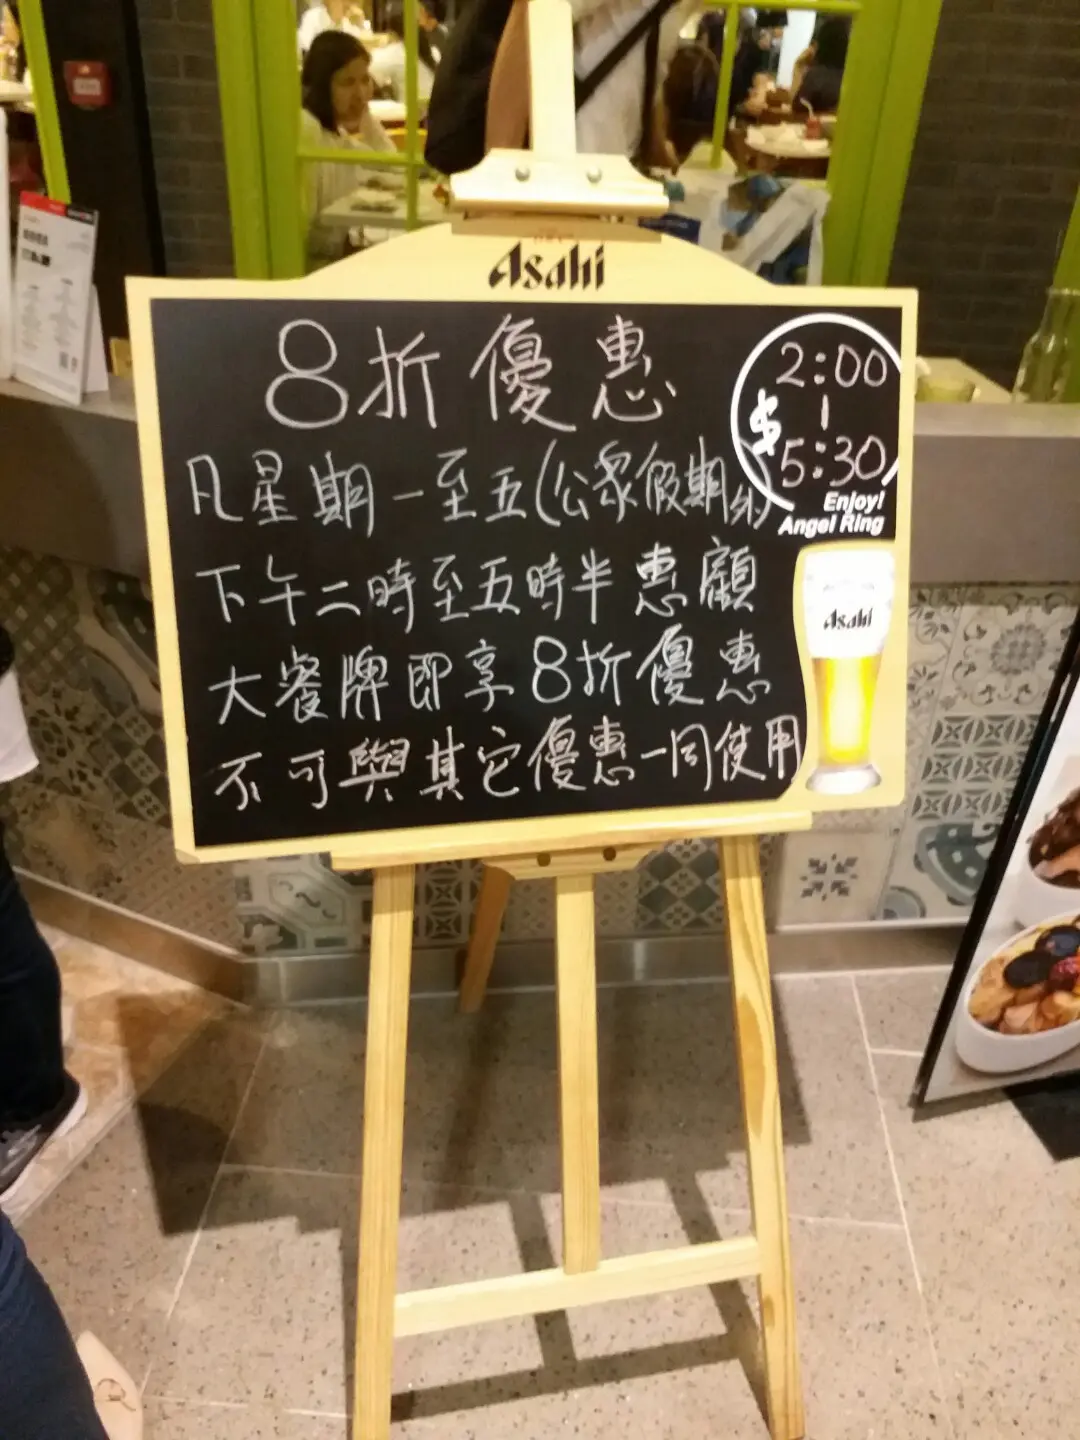 Asahi
8折優惠
2:00
$ |
5:30
Enjoy!
Angel Ring
凡星期一至五(公眾假期外)
下午二時至五時半惠顧
大餐牌即享8折優惠
不可與其它優惠一同使用
Asahi